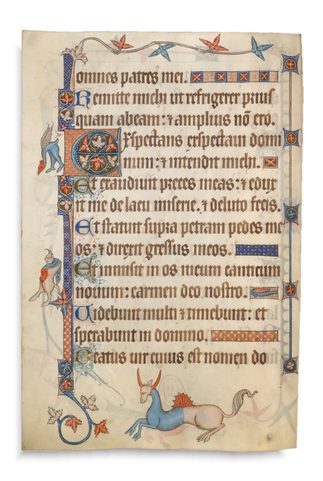 omnes patres mei.
Remitte michi ut refrigerer prius
quam abeam: ⁊ amplius nõ ero.
Exspectans exspectaui domi
num: ⁊ intendit michi.
Et exaudiuit preces meas: ⁊ eduxit
me de lacu miserie. ⁊ de luto fecis.
Et statuit supra petram pedes me
os: ⁊ direxit gressus meos.
Et inmisit in os meum canticum
nouum: carmen deo nostro.
Uidebunt multi ⁊ timebunt: et
sperabunt in domino.
Beatus uir cuius est nomen do